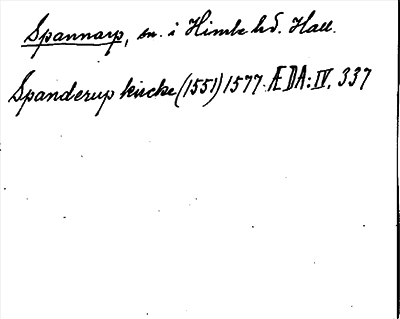 Spannarp, sn. i Himle hd. Hall.
Spanderup kircke (1551) 1577. ÆDA: IV, 337